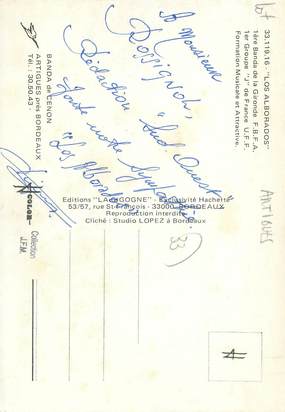 lot
33 119.16 - "LOS ALBORADOS"
1ère Banda de la Gironde F.B.F.A.
1er Groupe "J" de France U.F.F.
Formation Musicale et Attractive.
BANDA de CENON
ARTIGUES près BORDEAUX
Tél. : 30.50.43 -
A Monsieur
Rossignol,
Rédaction "Sud Ouest"
Toute notre sympathie.
"Los Alborados"
Editions "LA CIGOGNE" - Exclusivité Hachette
53/57, rue St-François - 33000 BORDEAUX
Reproduction interdite
Cliché : Studio LOPEZ à Bordeaux
COLOR
Collection
J.F.M.
33
ARTIGUES